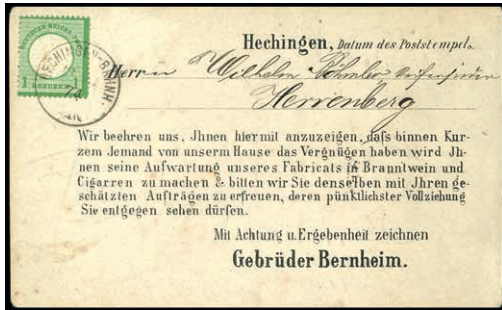 DEUTSCHE REICHS-POST
1
KREUZER
HECHINGEN-BAHNH.
Hechingen, Datum des Poststempels.
Herrn Wilhelm
Herrenberg
Wir beehren uns, Jhnen hiermit anzuzeigen, daſs binnen Kur-
zem Jemand von unserm Hause das Vergnügen haben wird Jh-
nen seine Aufwartung unseres Fabricats in Branntwein und
Cigarren zu machen & bitten wir Sie denselben mit Jhren ge-
schätzten Aufträgen zu erfreuen, deren pünktlichster Vollziehung
Sie entgegen sehen dürfen.
Mit Achtung u. Ergebenheit zeichnen
Gebrüder Bernheim.